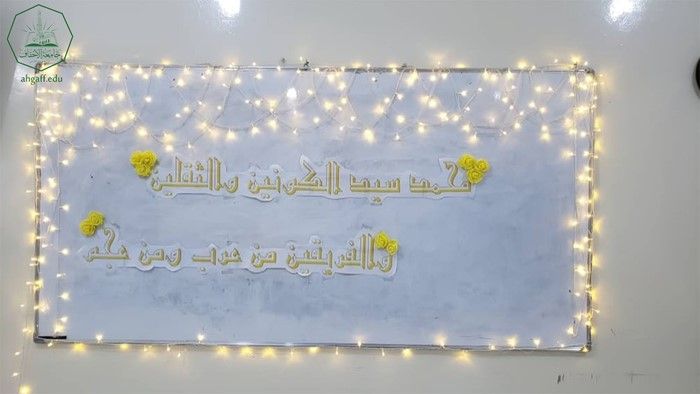 جامعة الأحقاف
ahgaff.edu
محمد سيد الكونين والثقلين
والفريقين من عرب ومن عجم